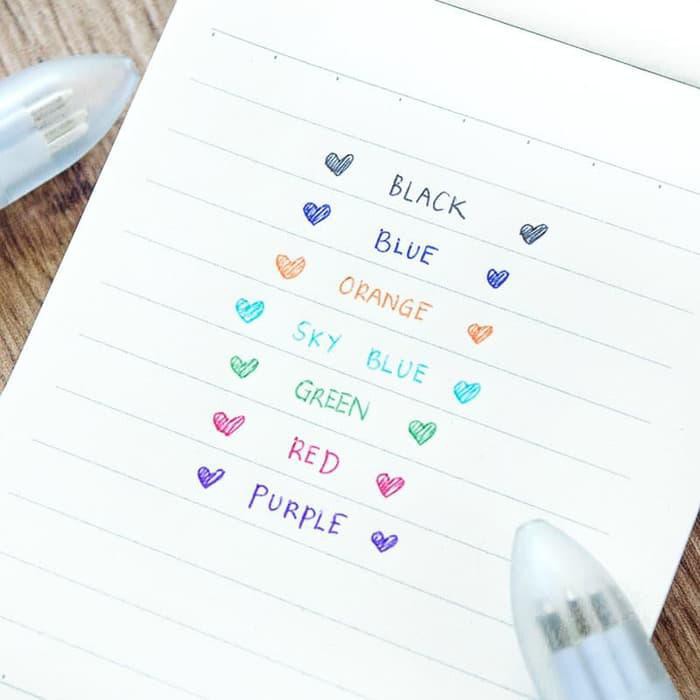 BLACK
BLUE
ORANGE
SKY BLUE
GREEN
RED
PURPLE